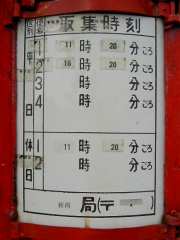 取集時刻
平日
1 11時20分ごろ
2 16時20分ごろ
3 時 分ごろ
4 時 分ごろ
休日
1 11時20分ごろ
2 時 分ごろ
局(〒 )